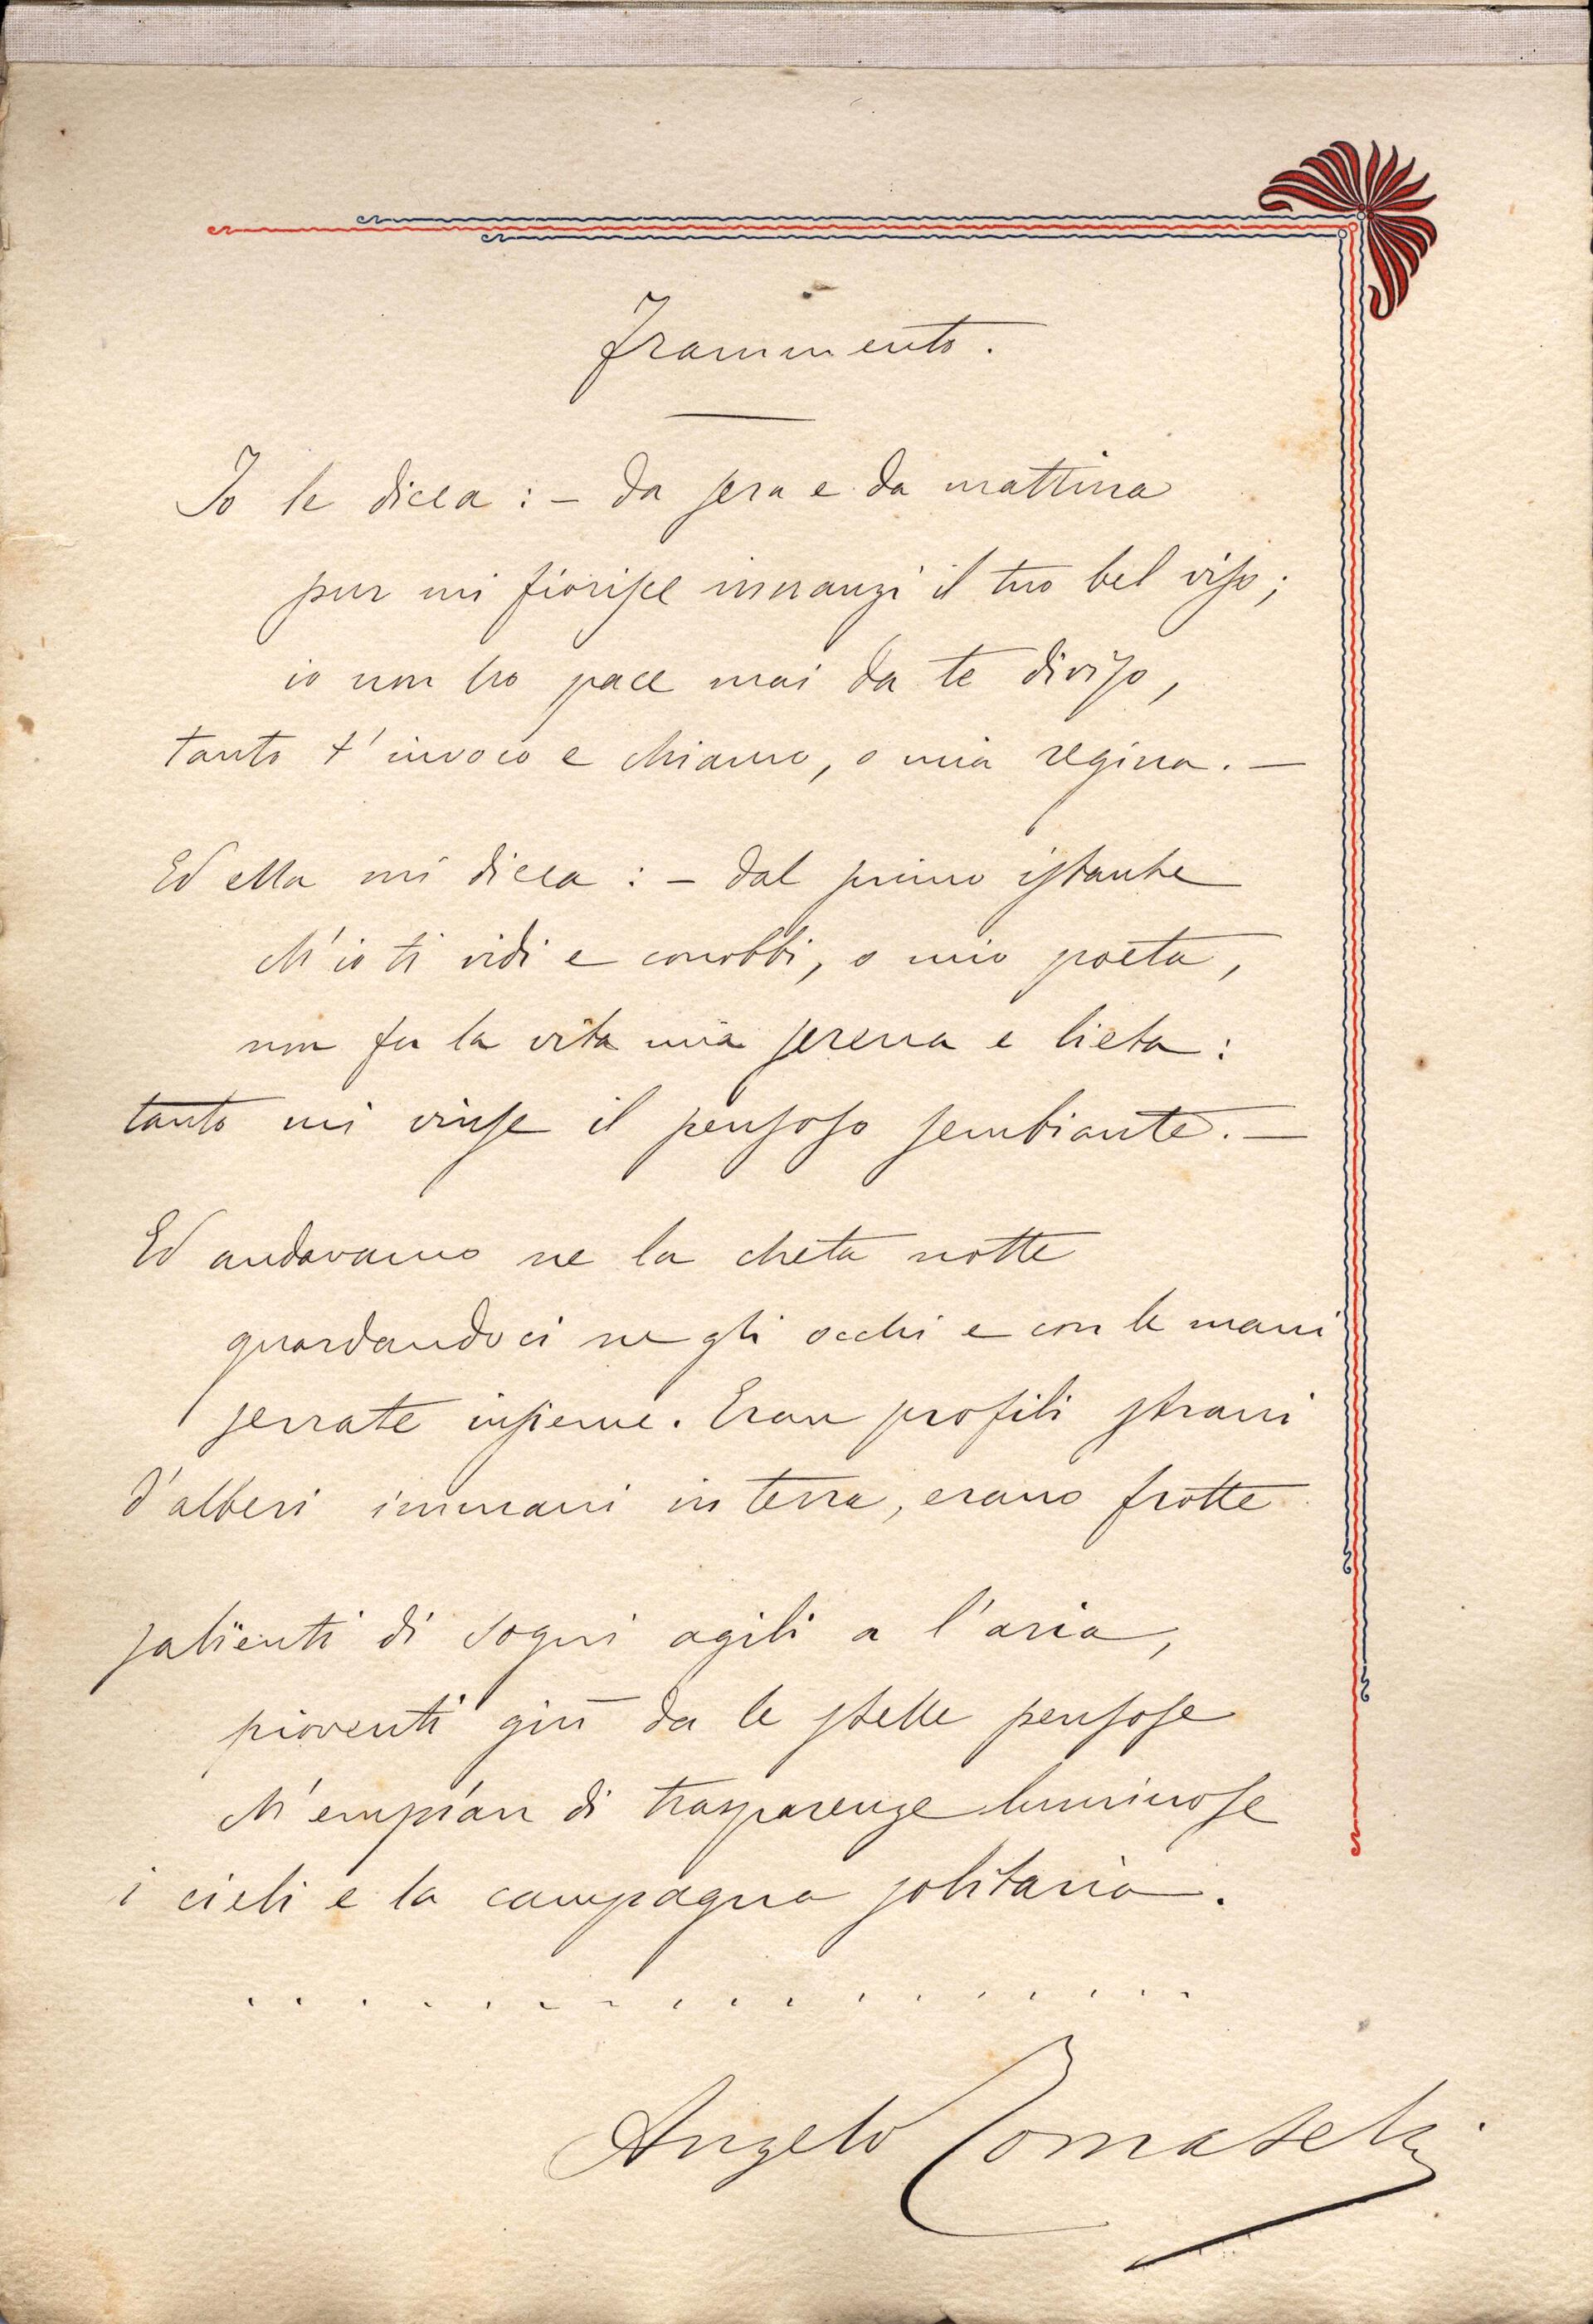 Frammento.
Io le dicea : – da sera e da mattina
pur mi fiorisce innanzi il tuo bel viso ;
io non ho pace mai da te diviso ,
tanto t'invoco e chiamo, o mia regina . –
Ed ella mi dicea : – dal primo istante
ch'io ti vidi e conobbi, o mio poeta ,
non fu la vita mia serena e lieta :
tanto mi vinse il pensoso sembiante . –
Ed andavamo ne la cheta notte
guardandoci ne gli occhi e con le mani
serrate insieme . Eran profili strani
d'alberi immani in terra , erano frotte
salïenti di sogni agili a l'aria ,
pioventi giù da le stelle pensose
ch'empían di trasparenze luminose
i cieli e la campagna solitaria .
. . . . . . . . . . . . . . . . .
Angelo Tomaselli